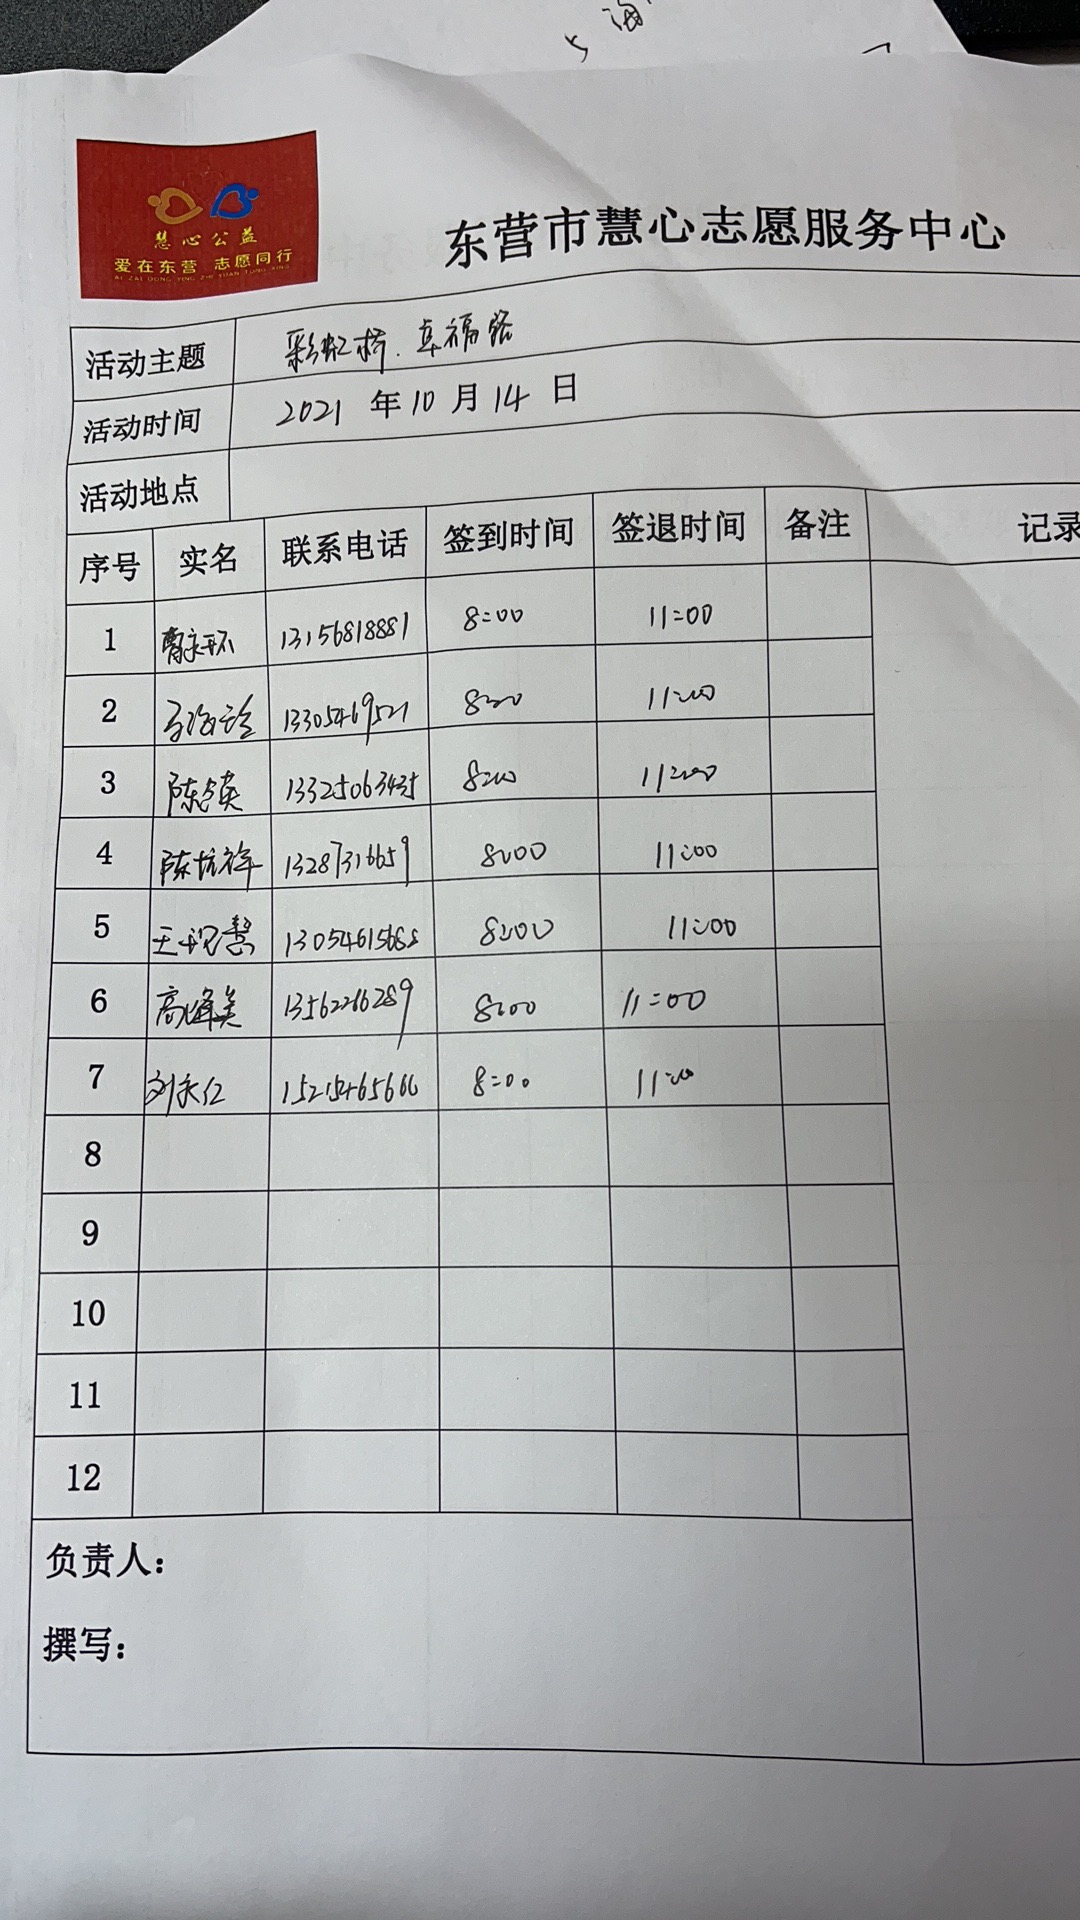 上海
慧心公益
爱在东营 志愿同行
AI ZAI DONG YING ZHI YUAN TONG XING
东营市慧心志愿服务中心
活动主题 彩虹桥.幸福路
活动时间 2021 年 10 月 14 日
活动地点
序号 实名 联系电话 签到时间 签退时间 备注 记录
1 曹永环 13156818881 8:00 11:00
2 13305469521 8:00 11:00
3 陈念英 13325063435 8:00 11:00
4 陈培祥 13287316659 8:00 11:00
5 王砚慧 13054615688 8:00 11:00
6 高峰美 13562266289 8:00 11:00
7 刘永仁 15215465666 8:00 11:00
8
9
10
11
12
负责人：
撰写：